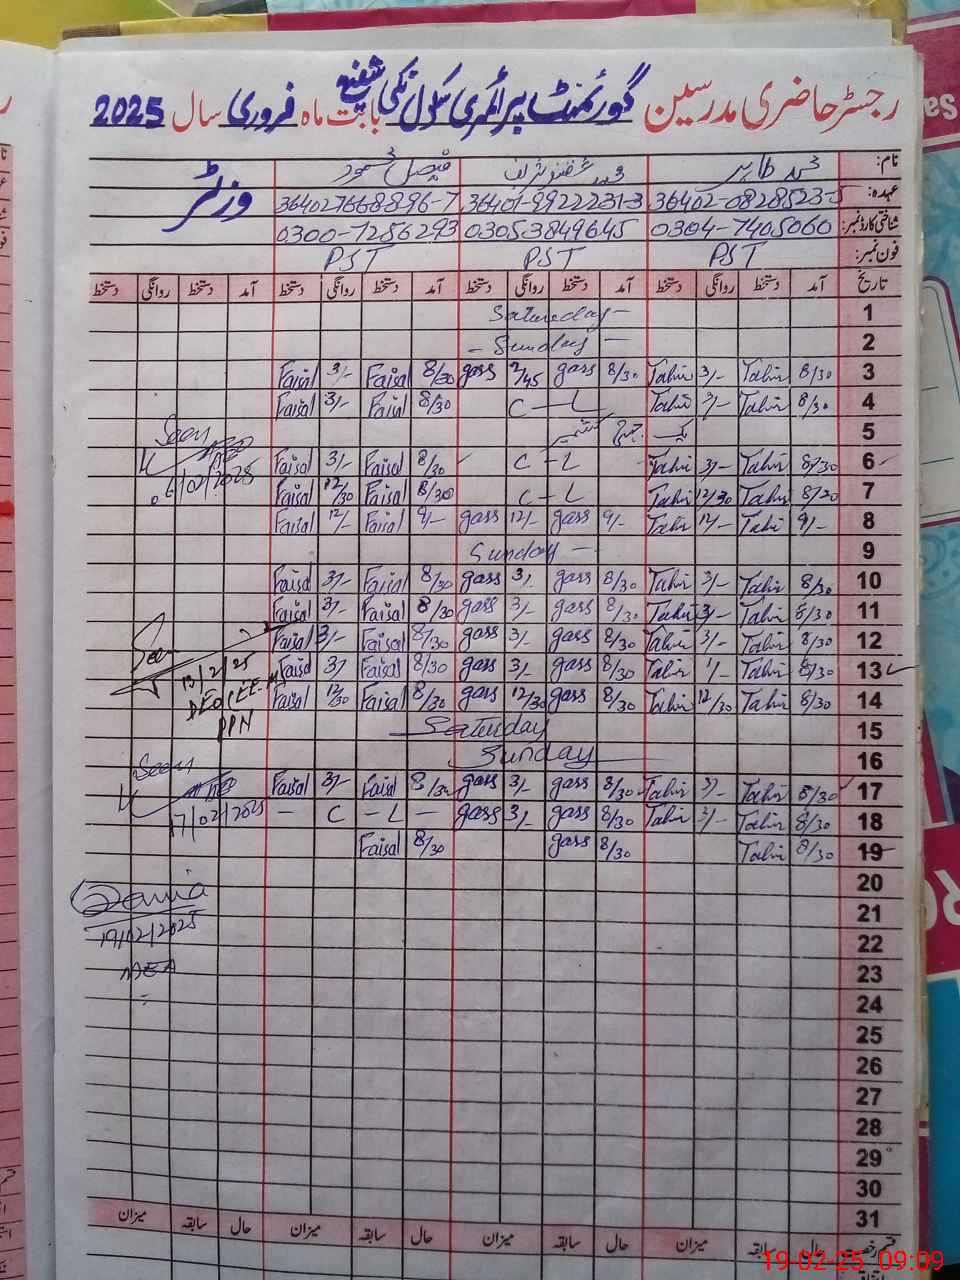 رجسٹر حاضری مدرسین گورنمنٹ پرائمری سکول نکی شفیع بابت ماہ فروری سال 2025
نام: محمد طاہر محمد غضنفر شریف فیصل محمود وزٹر
عہدہ: 36402-0828523-5 36401-9922231-3 364027668896-7
شناختی کارڈ نمبر: 0304-7405060 03053849645 0300-7256293
فون نمبر: PST PST PST
تاریخ آمد دستخط روانگی دستخط آمد دستخط روانگی دستخط آمد دستخط روانگی دستخط آمد دستخط روانگی دستخط
1 Satureday-
2 - Sunday -
3 8/30 Tahir 3/- Tahir 8/30 gass 2/45 gass 8/30 Faisal 3/- Faisal
4 8/30 Tahir 3/- Tahir C - L 8/30 Faisal 3/- Faisal
5 کشمیر
6 8/30 Tahir 3/- Tahir C - L 8/30 Faisal 3/- Faisal
Seen
06/02/2025
7 8/30 Tahir 12/30 Tahir C - L 8/30 Faisal 12/30 Faisal
8 9/- Tahir 12/- Tahir 9/- gass 12/- gass 9/- Faisal 12/- Faisal
9 Sunday -
10 8/30 Tahir 3/- Tahir 8/30 gass 3/- gass 8/30 Faisal 3/- Faisal
11 8/30 Tahir 3/- Tahir 8/30 gass 3/- gass 8/30 Faisal 3/- Faisal
12 8/30 Tahir 3/- Tahir 8/30 gass 3/- gass 8/30 Faisal 3/- Faisal
13 8/30 Tahir 1/- Tahir 8/30 gass 3/- gass 8/30 Faisal 3/ Faisal
14 8/30 Tahir 12/30 Tahir 8/30 gass 12/30 gass 8/30 Faisal 12/30 Faisal
See
13/2/25
DEO (EE-M)
PPN
15 Saturday
16 Sunday
17 8/30 Tahir 3/- Tahir 8/30 gass 3/- gass 8/30 Faisal 3/- Faisal
Seen
17/02/2025
18 8/30 Tahir 3/- Tahir 8/30 gass 3/- gass - C - L -
19 8/30 Tahir 8/30 gass 8/30 Faisal
20
Zania
21
19/02/2025
22
MEA
23
24
25
26
27
28
29
30
31
حال سابقہ میزان حال سابقہ میزان حال سابقہ میزان حال سابقہ میزان
19-02-25 09:09